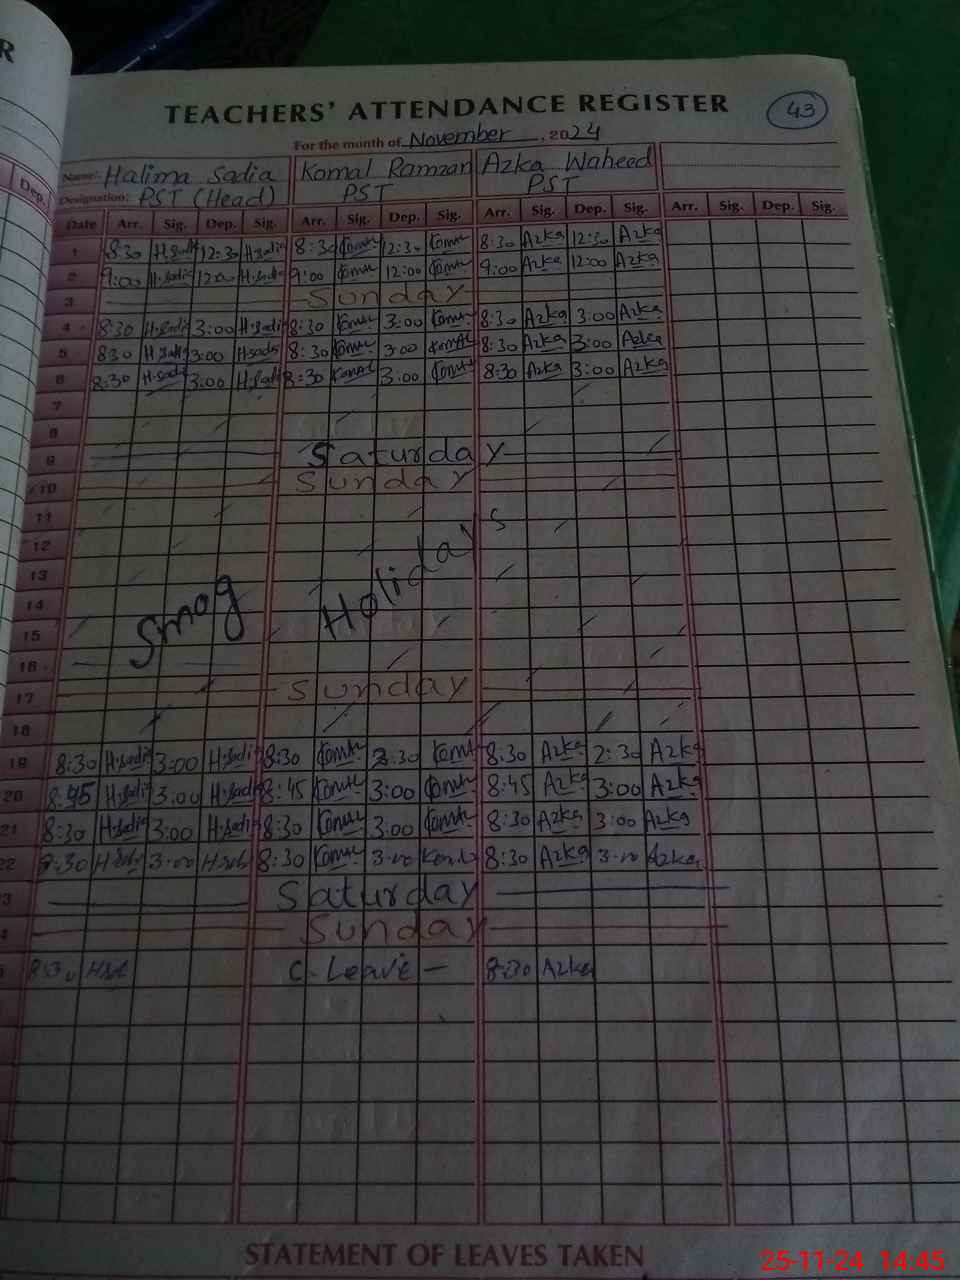 R
TEACHERS' ATTENDANCE REGISTER 43
For the month of November 2024
Name: Halima Sadia Komal Ramzan Azka Waheed
Designation: PST (Head) PST PST
Dep. Date Arr. Sig. Dep. Sig. Arr. Sig. Dep. Sig. Arr. Sig. Dep. Sig. Arr. Sig. Dep. Sig.
1 8:30 H.Sadia 12:30 H.Sadia 8:30 Komal 12:30 Komal 8:30 Azka 12:30 Azka
2 9:00 H.Sadia 12:00 H.Sadia 9:00 Komal 12:00 Komal 9:00 Azka 12:00 Azka
3 Sunday
4 8:30 H.Sadia 3:00 H.Sadia 8:30 Komal 3:00 Komal 8:30 Azka 3:00 Azka
5 8:30 H.Sadia 3:00 H.Sadia 8:30 Komal 3:00 Komal 8:30 Azka 3:00 Azka
6 8:30 H.Sadia 3:00 H.Sadia 8:30 Komal 3:00 Komal 8:30 Azka 3:00 Azka
7
8
9 Saturday
10 Sunday
11
12
13
14 Smog Holidays
15
16
17 Sunday
18
19 8:30 H.Sadia 3:00 H.Sadia 8:30 Komal 2:30 Komal 8:30 Azka 2:30 Azka
20 8:45 H.Sadia 3:00 H.Sadia 8:45 Komal 3:00 Komal 8:45 Azka 3:00 Azka
21 8:30 H.Sadia 3:00 H.Sadia 8:30 Komal 3:00 Komal 8:30 Azka 3:00 Azka
22 8:30 3:00 8:30 Komal 3:00 Komal 8:30 Azka 3:00 Azka
3 Saturday
4 Sunday
8:30 C. Leave – 8:30 Azka
STATEMENT OF LEAVES TAKEN
25-11-24 14:45